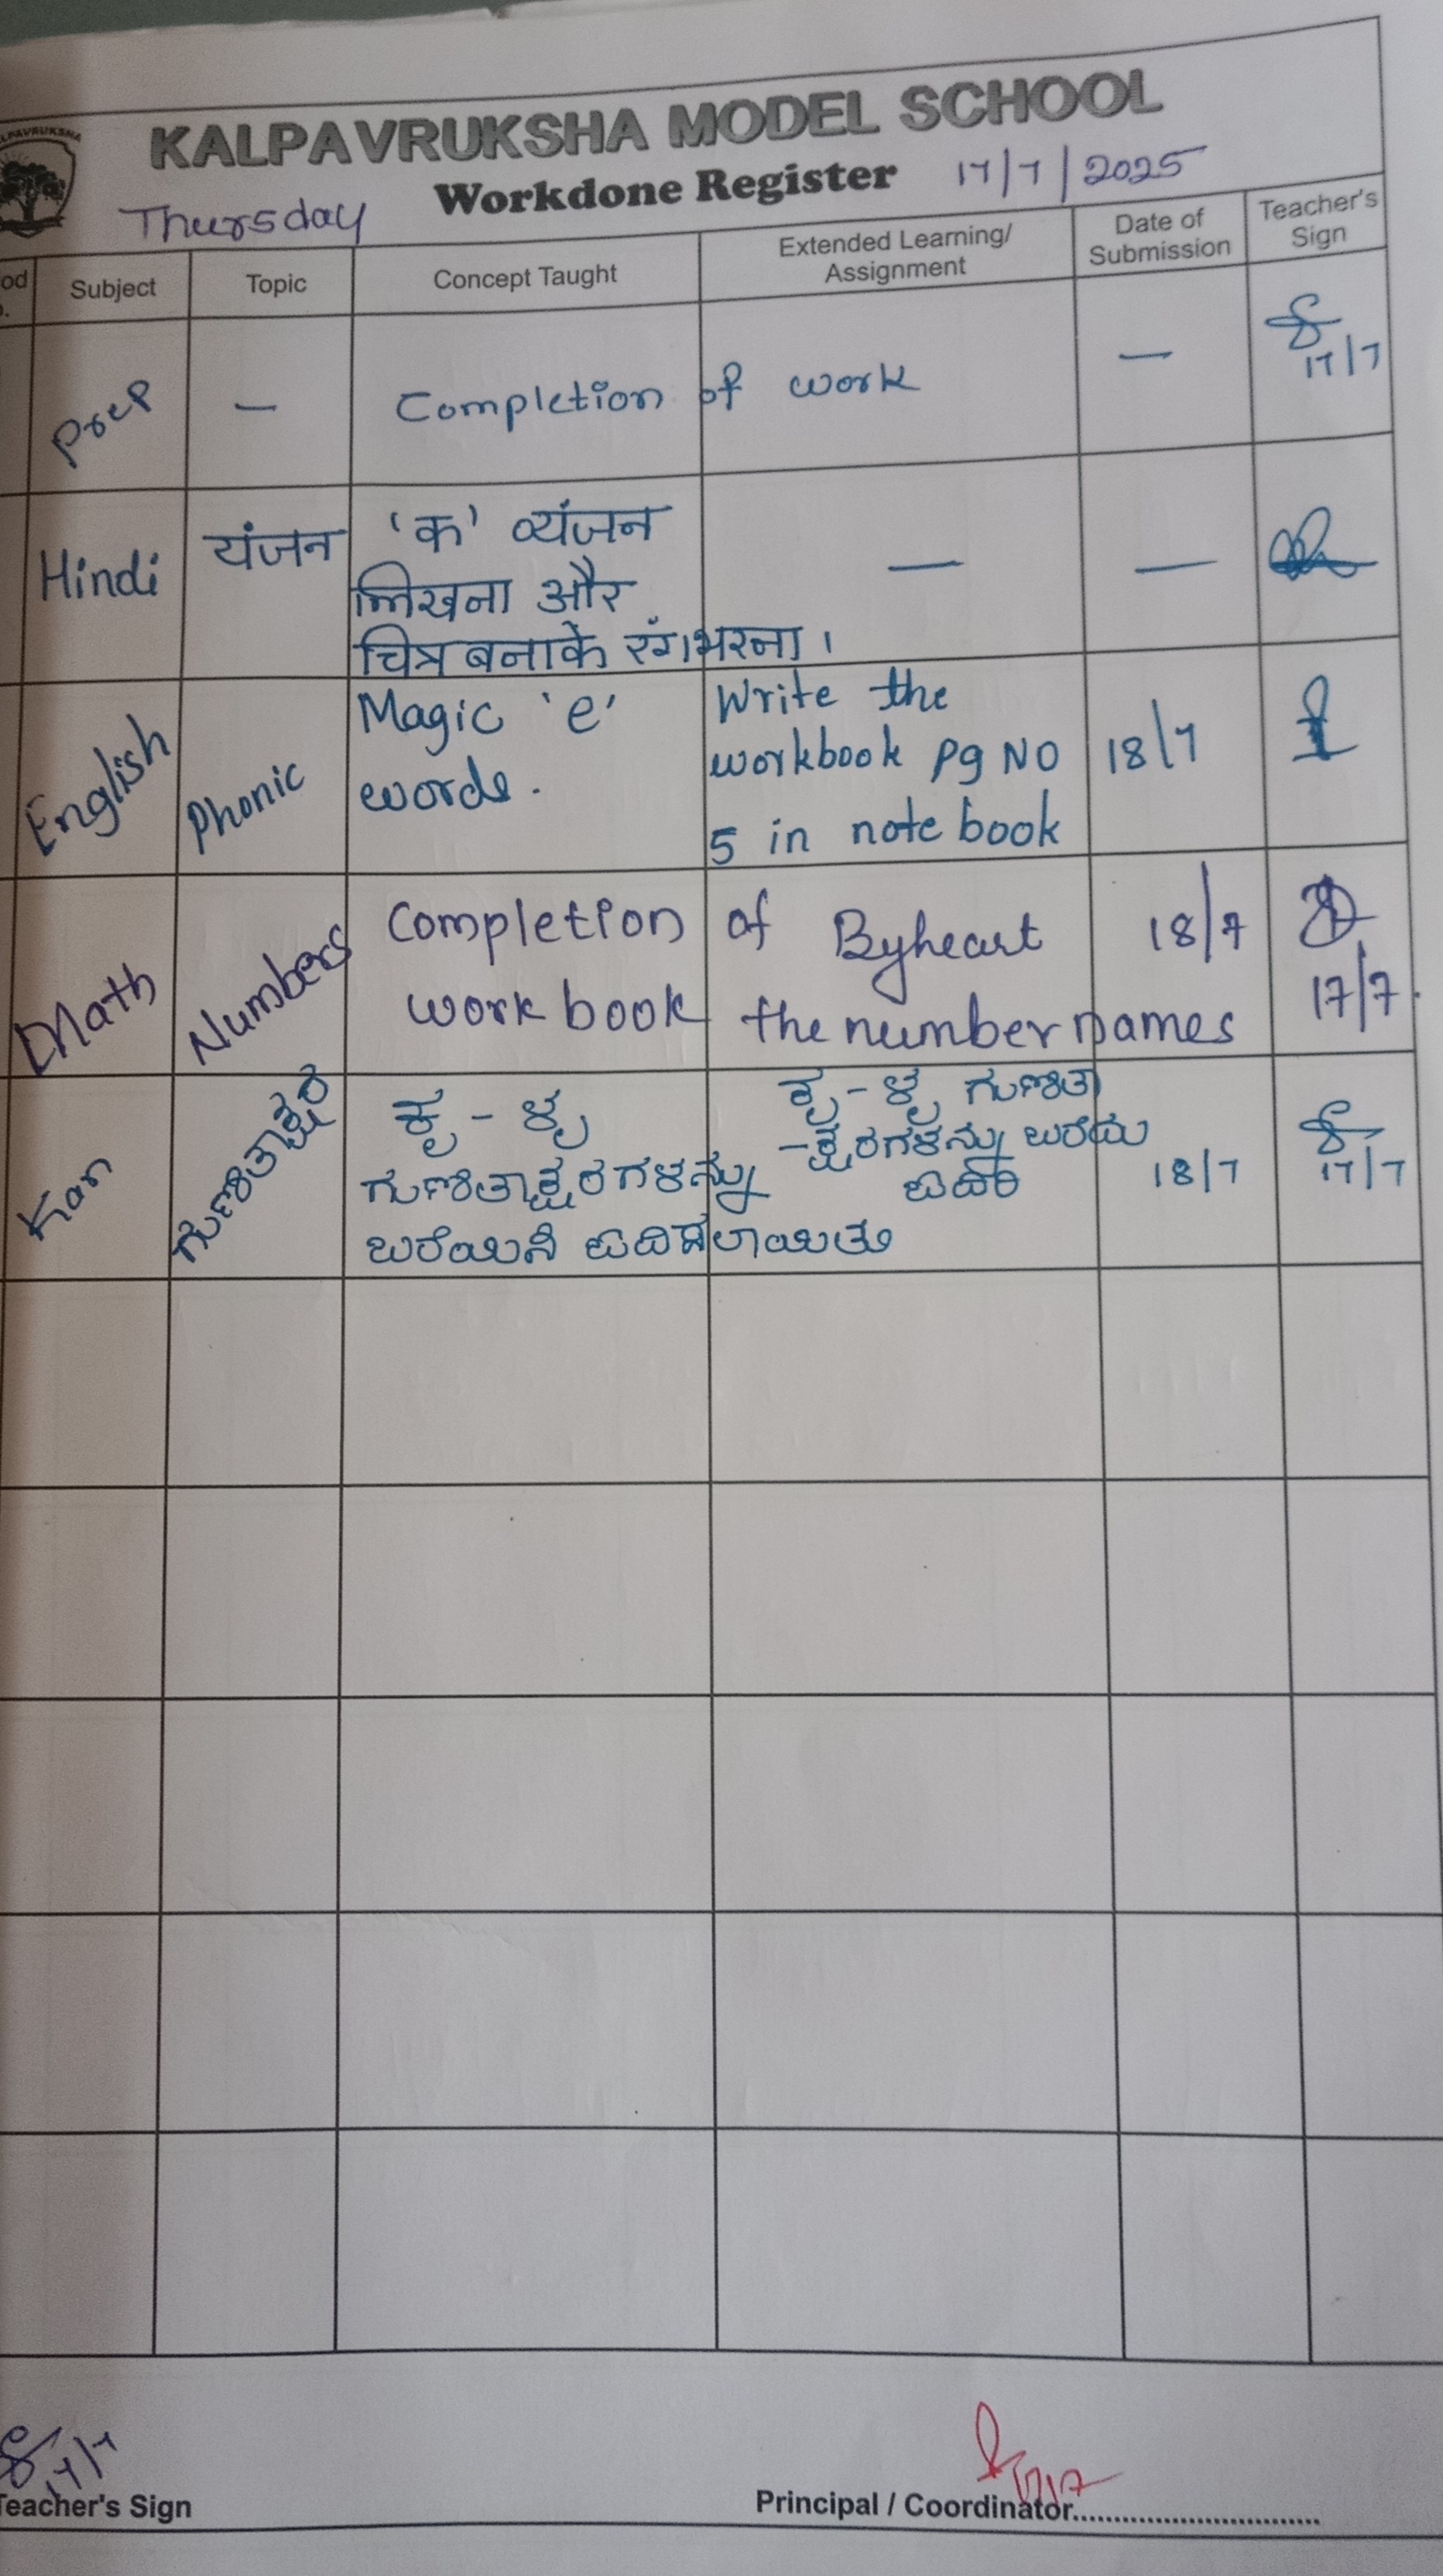 KALPAVRUKSHA
KALPAVRUKSHA MODEL SCHOOL
Thursday Workdone Register 17/7/2025
od Subject Topic Concept Taught Extended Learning/ Assignment Date of Submission Teacher's Sign
Prep — Completion of work — 17/7
Hindi यंजन 'क' व्यंजन — —
लिखना और
चित्र बनाके रंग भरना।
English Phonic Magic 'e' Write the
words. workbook pg NO 18/7
5 in note book
Math Numbers Completion of Byheart 18/7
work book the number names 17/7
Kan ಗುಣಿತಾಕ್ಷರ ಕೃ - ಳೃ ಕೃ - ಳೃ ಗುಣಿತಾ
ಗುಣಿತಾಕ್ಷರಗಳನ್ನು -ಕ್ಷರಗಳನ್ನು ಬರೆದು 18/7 17/7
ಬರೆಯಿಸಿ ಓದಿಸಲಾಯಿತು
17/7 17/7
Teacher's Sign Principal / Coordinator